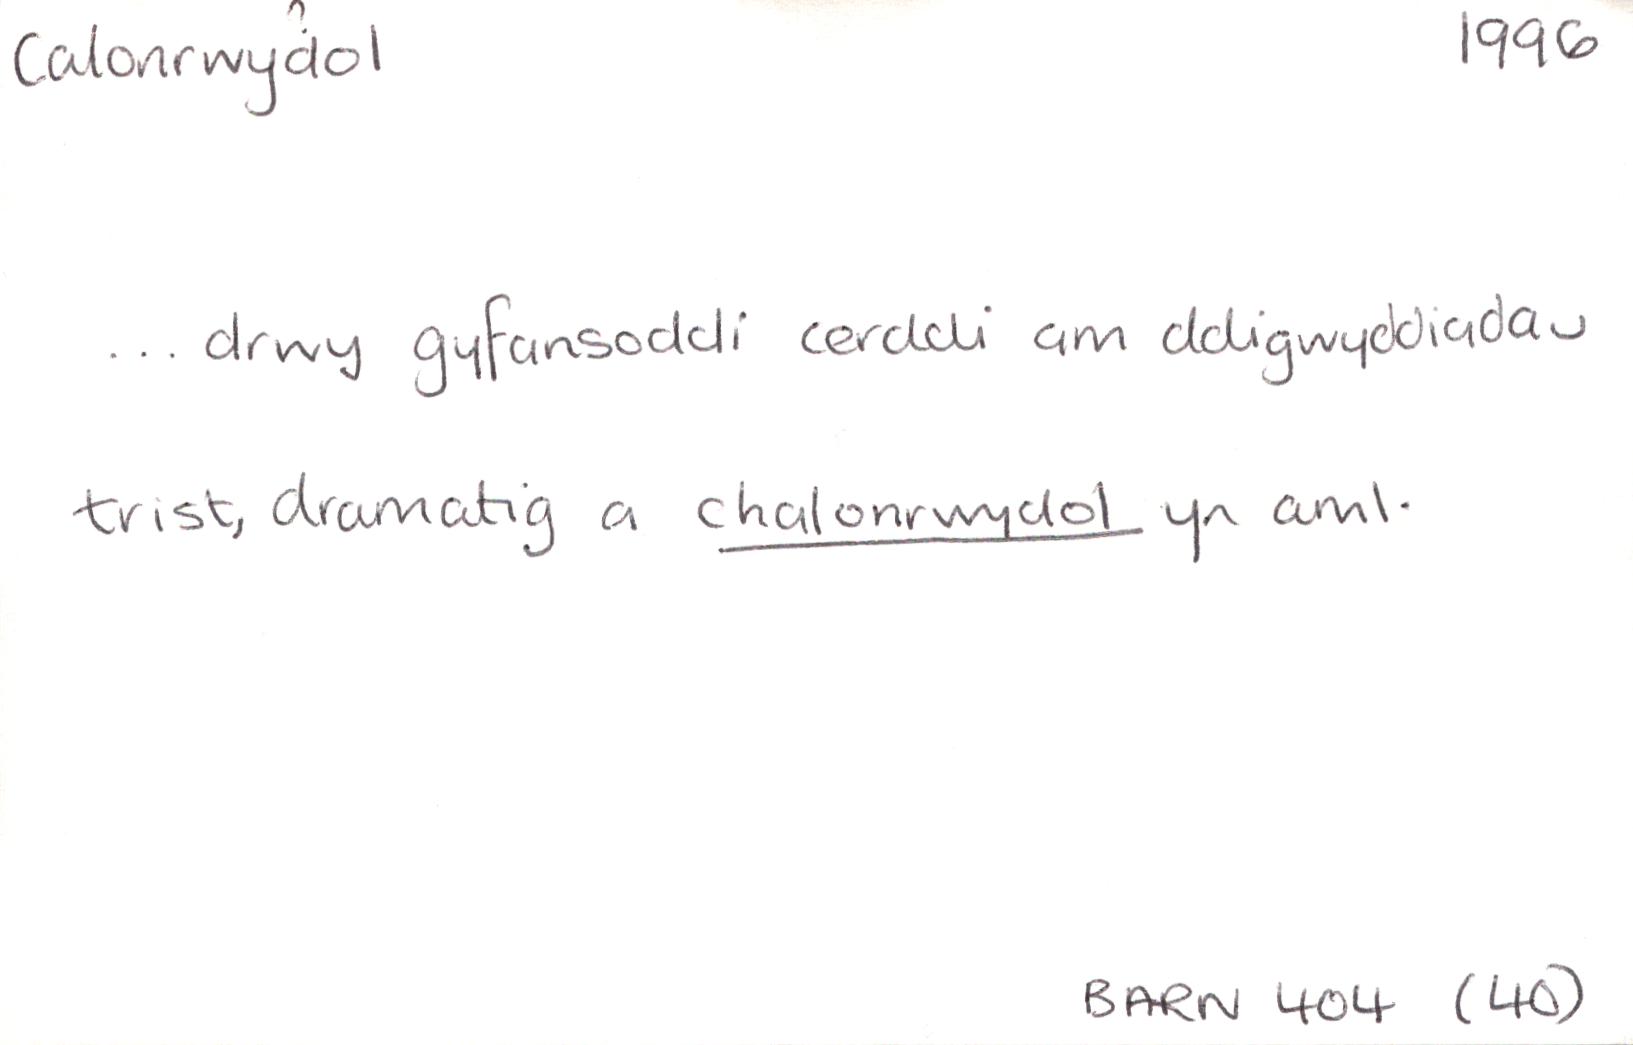 Calonrwydol 1996
... drwy gyfansoddi cerddi am ddigwyddiadau
trist, dramatig a chalonrwydol yn aml.
BARN 404 (40)